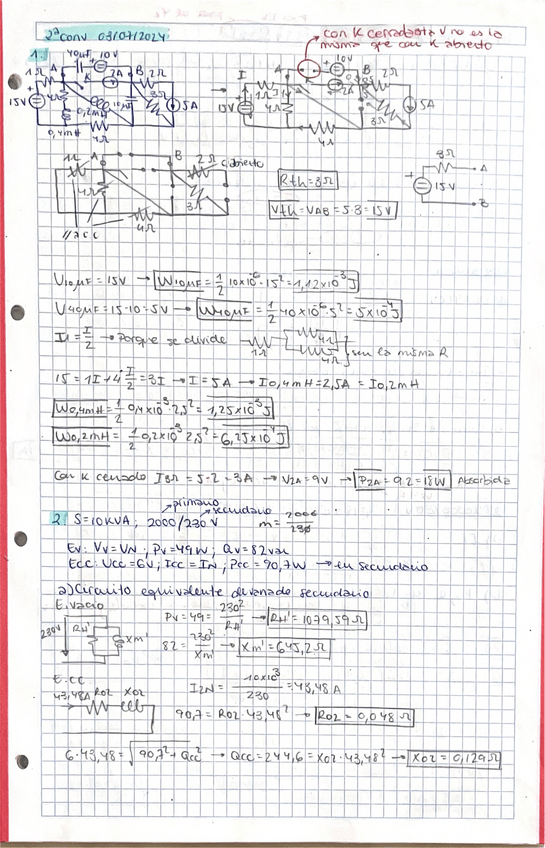 2ªconv 03/07/2024
con K cerrado la V no es la
misma que con K abierto
1.
40µF 10V
1Ω A K 2A B 2Ω
15V 4Ω 10µF 3Ω 5A
0,2mH
0,4mH 4Ω
I A 10V B 2Ω
15V 1Ω I1 4Ω 2A 3Ω 5A
4Ω
1Ω A B 2Ω c.abierto
4Ω 3Ω
4Ω
// a cc
Rth=3Ω
Vth=VAB=5·3=15V
3Ω A
15V
B
V10µF=15V → W10µF=1/2 10x10^-6·15²=1,12x10^-3J
V40µF=15-10=5V → W40µF=1/2 40x10^-6·5²=5x10^-4J
I1=I/2 → Porque se divide 1Ω 4Ω 4Ω son la misma R
15=1I+4·I/2=3I → I=5A → I0,4mH=2,5A=I0,2mH
W0,4mH=1/2 0,4x10^-3 2,5²=1,25x10^-3J
W0,2mH=1/2 0,2x10^-3 2,5²=6,25x10^-4J
Con K cerrado I3Ω=5-2=3A → V2A=9V → P2A=9·2=18W Absorbida
primario
secundario
2. S=10KVA; 2000/230 V m=2000/230
Ev: Vv=VN; Pv=49W; Qv=82var
Ecc: Ucc=6V; Icc=IN; Pcc=90,7W → en secundario
a) Circuito equivalente devanado secundario
E.vacío
230V RH' Xm'
Pv=49=230²/RH' → RH'=1079,59Ω
82=230²/Xm' → Xm'=645,2Ω
E.cc
43,48A R02 X02
I2N=10x10³/230=43,48A
90,7=R02·43,48² → R02=0,048Ω
6·43,48=√90,7²+Qcc² → Qcc=244,6=X02·43,48² → X02=0,129Ω